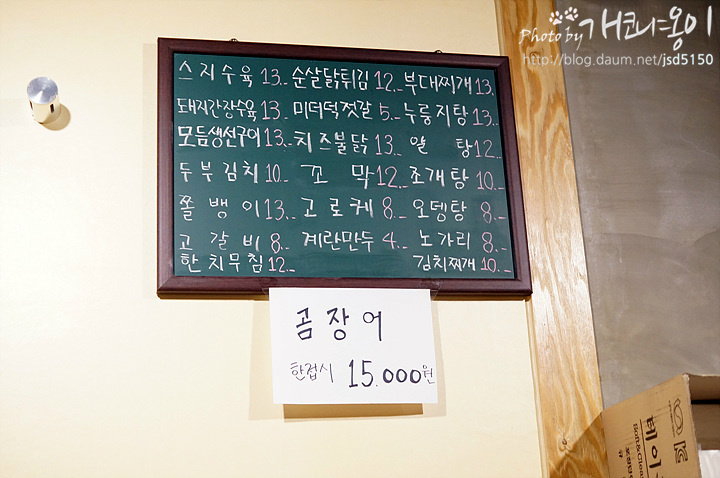 Photo by 개코냐옹이
http://blog.daum.net/jsd5150
스지수육 13.- 순살닭튀김 12.- 부대찌개 13.-
돼지간장수육 13.- 미더덕젓갈 5.- 누룽지탕 13.-
모듬생선구이 13.- 치즈불닭 13.- 알 탕 12.-
두부김치 10.- 꼬 막 12.- 조개탕 10.-
쫄뱅이 13.- 고로케 8.- 오뎅탕 8.-
고갈비 8.- 계란만두 4.- 노가리 8.-
한치무침 12.- 김치찌개 10.-
곰장어
한접시 15.000원
페이
Soft&Clean